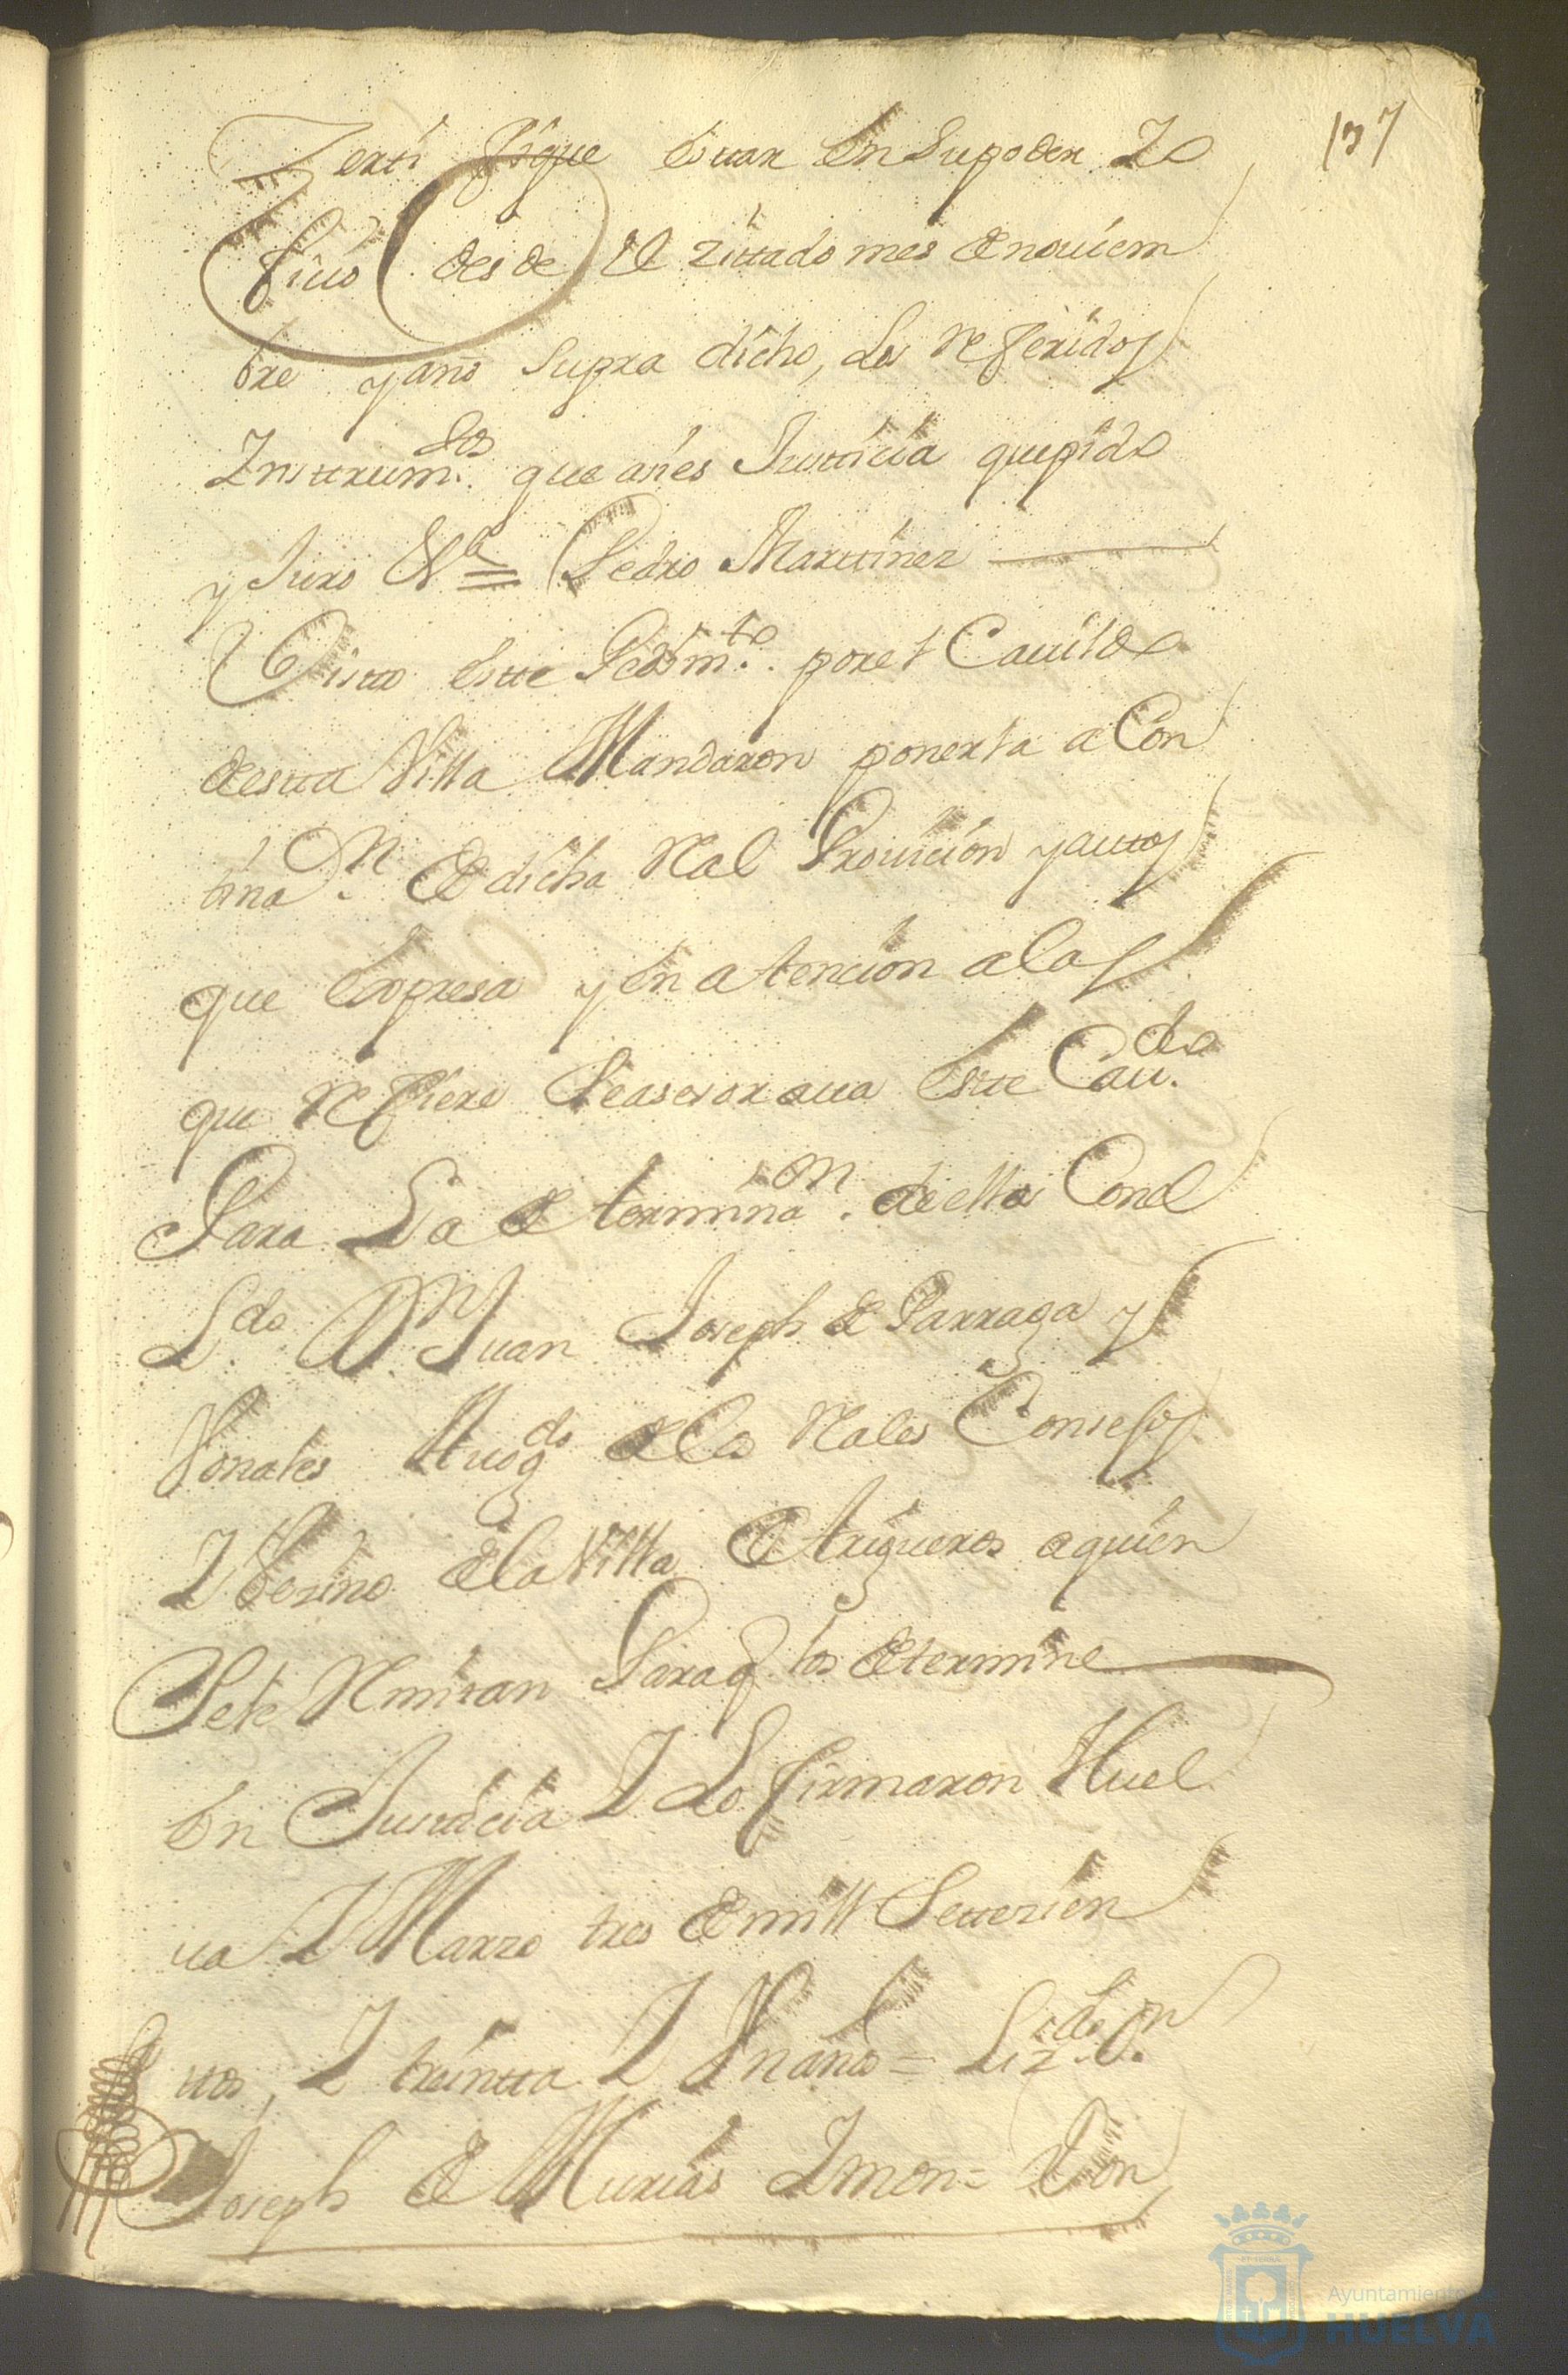 137
Zerti fique estar en supoder Y o
ficio desde el zittado mes de nouiem
bre y año supra dicho, los referidos
Ynsttrum.tos que asi es Justticia que pido
y Juro Va = Pedro Marttinez
Vistto estte Pedim.to por el Cauildo
de estta Villa Mandaron ponerla a Con
tina.on de dicha Real Prouicion y auttos
que expresa y en atencion a los
que refiere se asesoraua estte Cau.do
Para La determina.on de ellos Con el
L.do D.n Juan Joseph de Parraga y
Vonales Auog.do de los Reales Consejos
Y Vezino de la Villa de trigueros a quien
Se le Remitan Para q los determine
en Justicia Y Lo firmaron Huel
ua Y Marzo tres de mill Settezien
ttos, Y treintta Y Un año = Liz.do D.n
Joseph de Murias Ymon = Don
Ayuntamiento de
HUELVA